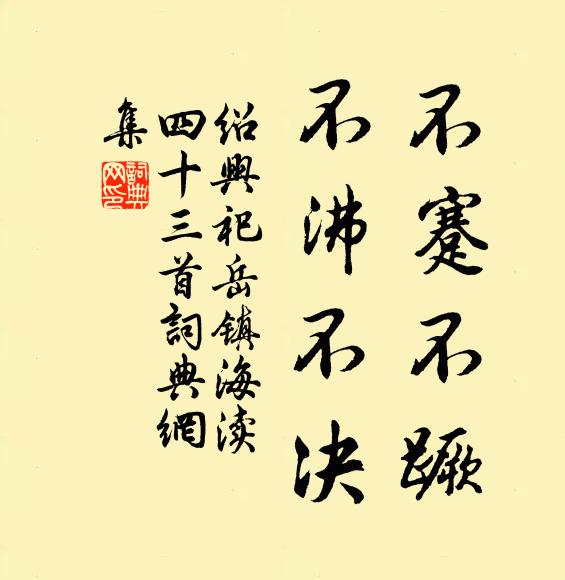 不蹇不蹶
不沸不决
绍興祀岳镇海渎
四十三首詞典網
集
詞典
网印